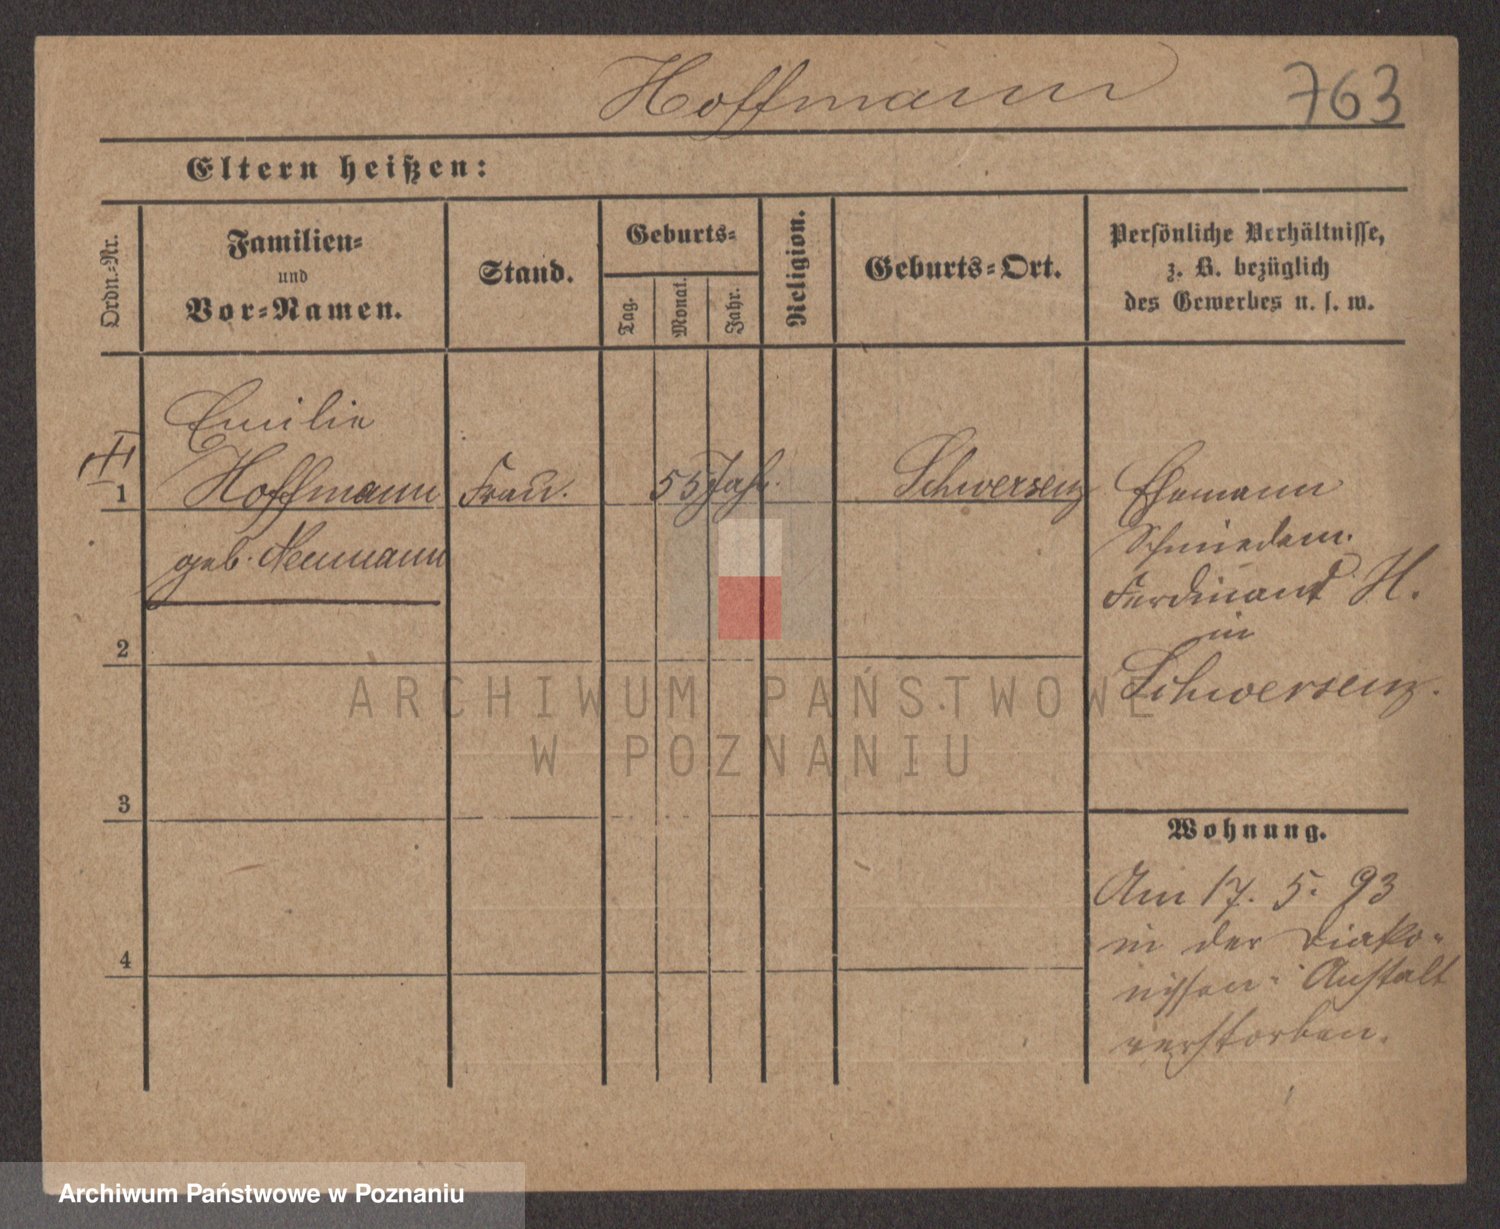 Hoffmann 763
Eltern heißen:
Ordn.-Nr.
Familien-
und
Vor-Namen.
Stand.
Geburts-
Tag.
Monat.
Jahr.
Religion.
Geburts-Ort.
Persönliche Verhältnisse,
z. B. bezüglich
des Gewerbes u. s. w.
Emilie
1 Hoffmann Frau. 55 Jahr. Schwersenz
geb. Neumann
Ehemann
Schmiedem.
Ferdinand H.
in
Schwersenz.
2
3
4
Wohnung.
Am 17. 5. 93
in der Diako-
nissen-Anstalt
verstorben.
ARCHIWUM PAŃSTWOWE
W POZNANIU
Archiwum Państwowe w Poznaniu